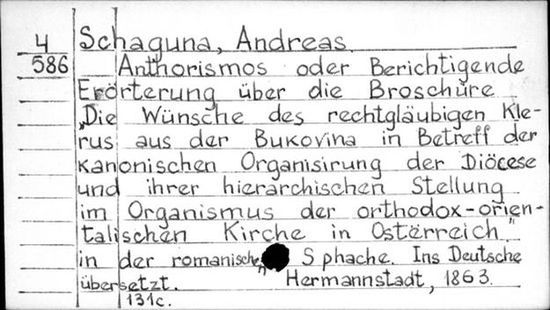 4 Schaguna, Andreas.
586 Anthorismos oder Berichtigende
Erörterung über die Broschüre
„Die Wünsche des rechtgläubigen Kle-
rus aus der Bukovina in Betreff der
kanonischen Organisirung der Diöcese
und ihrer hierarchischen Stellung
im Organismus der orthodox-orien-
talischen Kirche in Ostärreich"
in der romanische„ Sphache. Ins Deutsche
übersetzt. Hermannstadt, 1863.
131c.